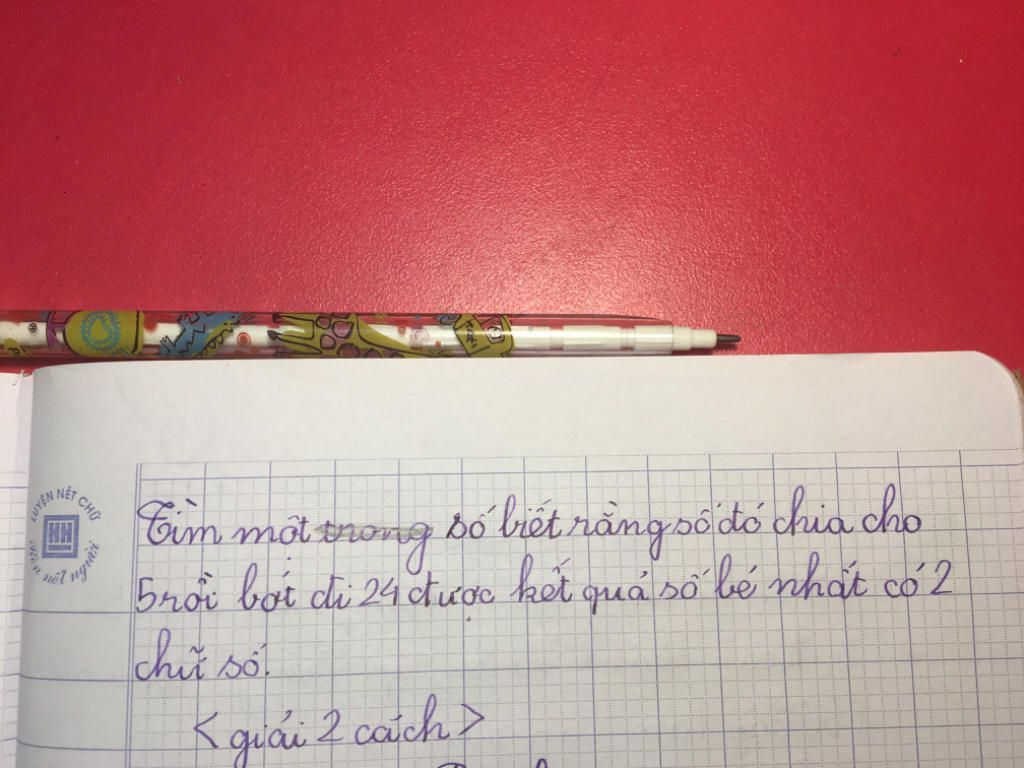 LUYỆN NÉT CHỮ
HH
RÈN nết người
Tìm một trong số biết rằng số đó chia cho
5 rồi bớt đi 24 được kết quả số bé nhất có 2
chữ số.
<giải 2 cách>